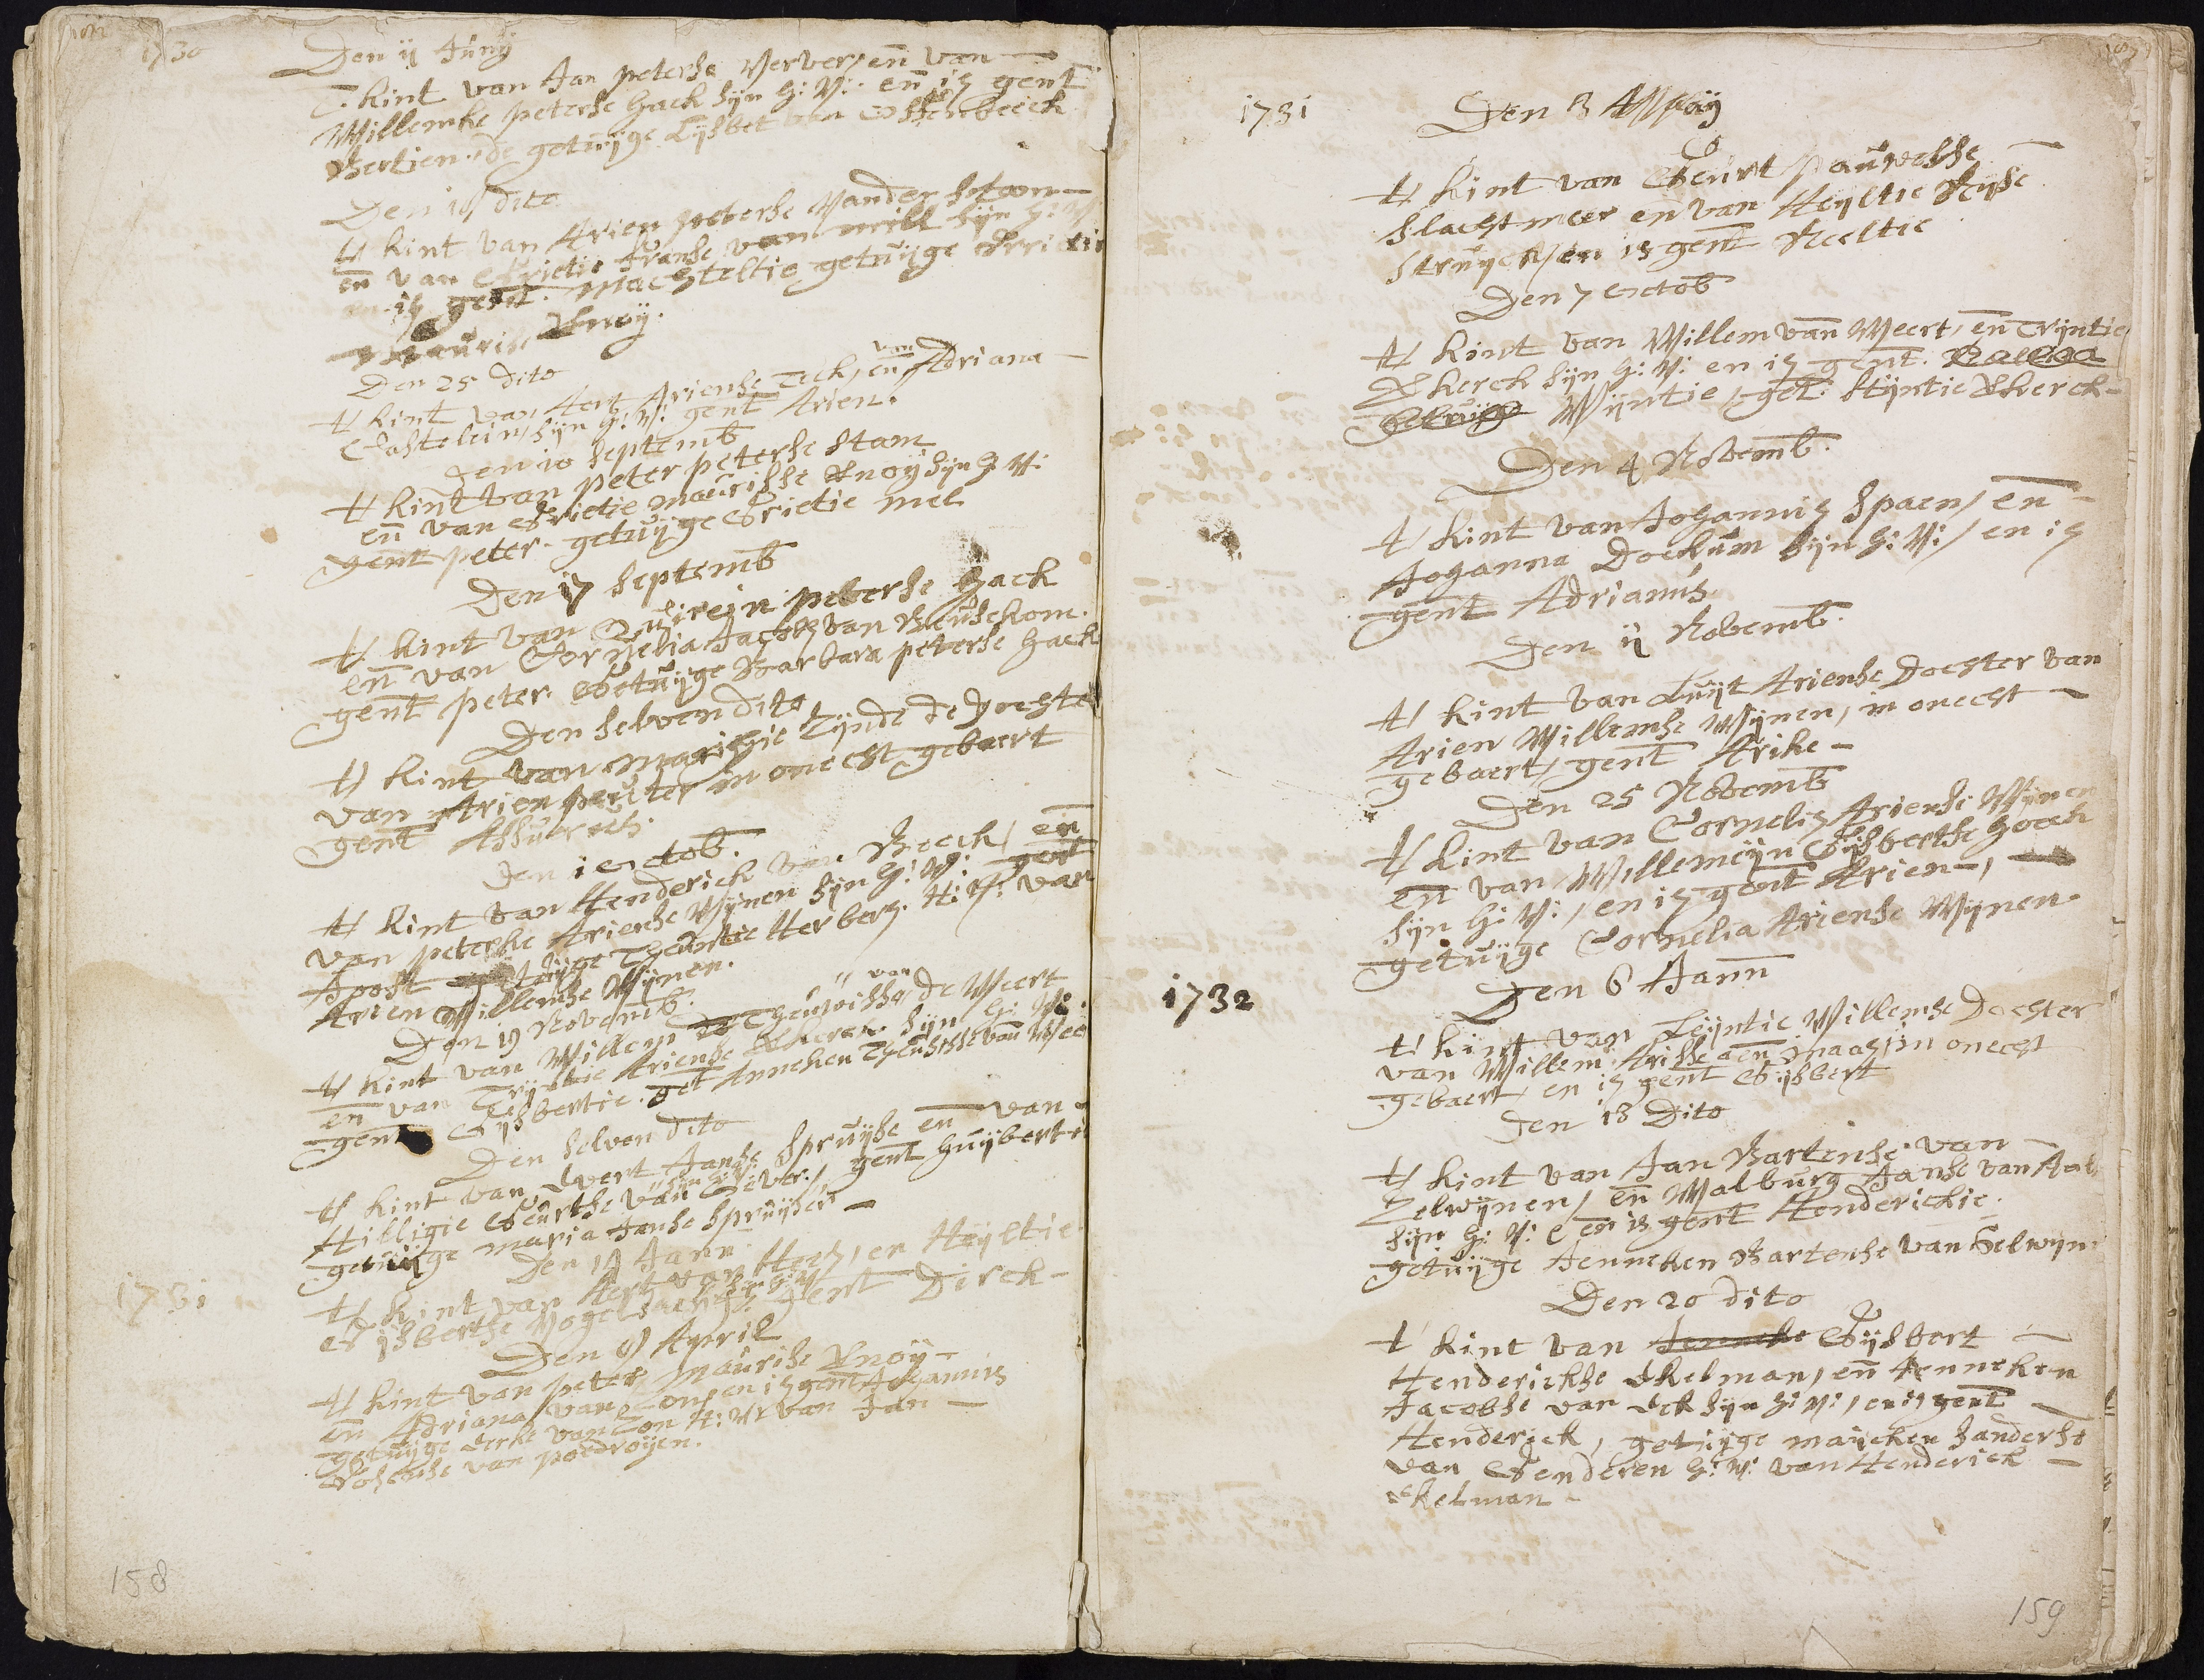 1730
Den ij Junij
T. kint van Jan peterse Verver, en van
Willemke peterse Hack sijn H: V: en is gent
Berlien. de getuijge Lijsbet van Osschebeeck
Den 18 dito
't kint van Arien peterse Vander Stam
en van Grietie Franse van mill sijn H: V:
en is gent. Machteltie getuijge Grietie
Maurisse Knoij.
Den 25 dito
't kint van Aert Ariense Teck, en van Adriana
Castelein, sijn H: V: gent Arien.
Den 10 Septemb
't kint van peter peterse Stam
en van Grietie Maurisse Knoij sijn H V:
gent peter. getuijge Grietie mel
Den 17 Septemb
't kint van Quirein peterse Hack
en van Cornelia Jacobs van Beusekom.
gent peter. Getuijge Barbara peterse Hack
Den selven dito
't kint van Marichie zijnde de Dochter
van Arien peruter in onecht gebaert
gent Assuerus.
Den 1 Octob.
't kint van Henderick van Boeck, en
van peterke Ariense Wijnen sijn H: V: gent
Joost getuijge Theuntie Herbers. H: V: van
Arien Willemse Wijnen.
Den 19 Novemb.
't kint van Willem Theunisse van de Weert
en van Trijntie Ariense Ekeren sijn H: V:
gent Gijsbertie. get Anneken Theunisse van Wee
Den selven dito
't kint van Evert Janse Spruijse en van
Hilligie Geurtse van Gever. sijn H: V: gent Huijbert
getuijge Maria Janse Spruijsen
1731
Den 14 Jann
't kint van Aert van Hees, en Heijltie
Gijsbertse Vogelsanck sijn H: V: gent Dirck
Den 9 Appril
't kint van peter Maurisse Knoij
en Adriana van Lon, en is gent Johannis
getuijge Derke van Lon H: V: van Jan
Gosense van poedroijen.
158
1731
Den 3 Meij
't kint van Geurt pauwelsse
Slachtmeer en van Heijltie Rijse
Struijck, en is gent Neeltie
Den 7 Octob
't kint van Willem van Weert, en Trijntie
Ekerck sijn H: V: en is gent.
Wijntie, get: Stijntie Ekerck
Den 4 Novemb.
't kint van Johannis Spaen, en
Johanna Dockum sijn H: V:, en is
gent Adrianus
Den ij Novemb.
't kint van Luijt Ariense Dochter van
Arien Willemse Wijnen, in onecht
gebaert, gent Arike
Den 25 Novemb
't kint van Cornelis Ariense Wijnen
en van Willemijn Gijsbertse Hoeck
sijn H: V:, en is gent Arien,
getuijge Cornelia Ariense Wijnen.
1732
Den 6 Jann
't kint van Leijntie Willemse Dochter
van Willem Arisse aen maas, in onecht
gebaert, en is gent Gijsbert
Den 13 Dito
't kint van Jan Bartense van
Zelwijnen, en Walburg Janse van Aal
sijn H: V: en is gent Henderickie.
getuijge Jenneken Bartense van Selwijn
Den 20 dito
't kint van Gijsbert
Hendericksе Ekelman, en Jenneken
Jacobse van Eck sijn H: V:, en is gent
Henderick, getuijge Maijcken Sanderse
van Genderen H: V: van Henderick
Ekelman
159